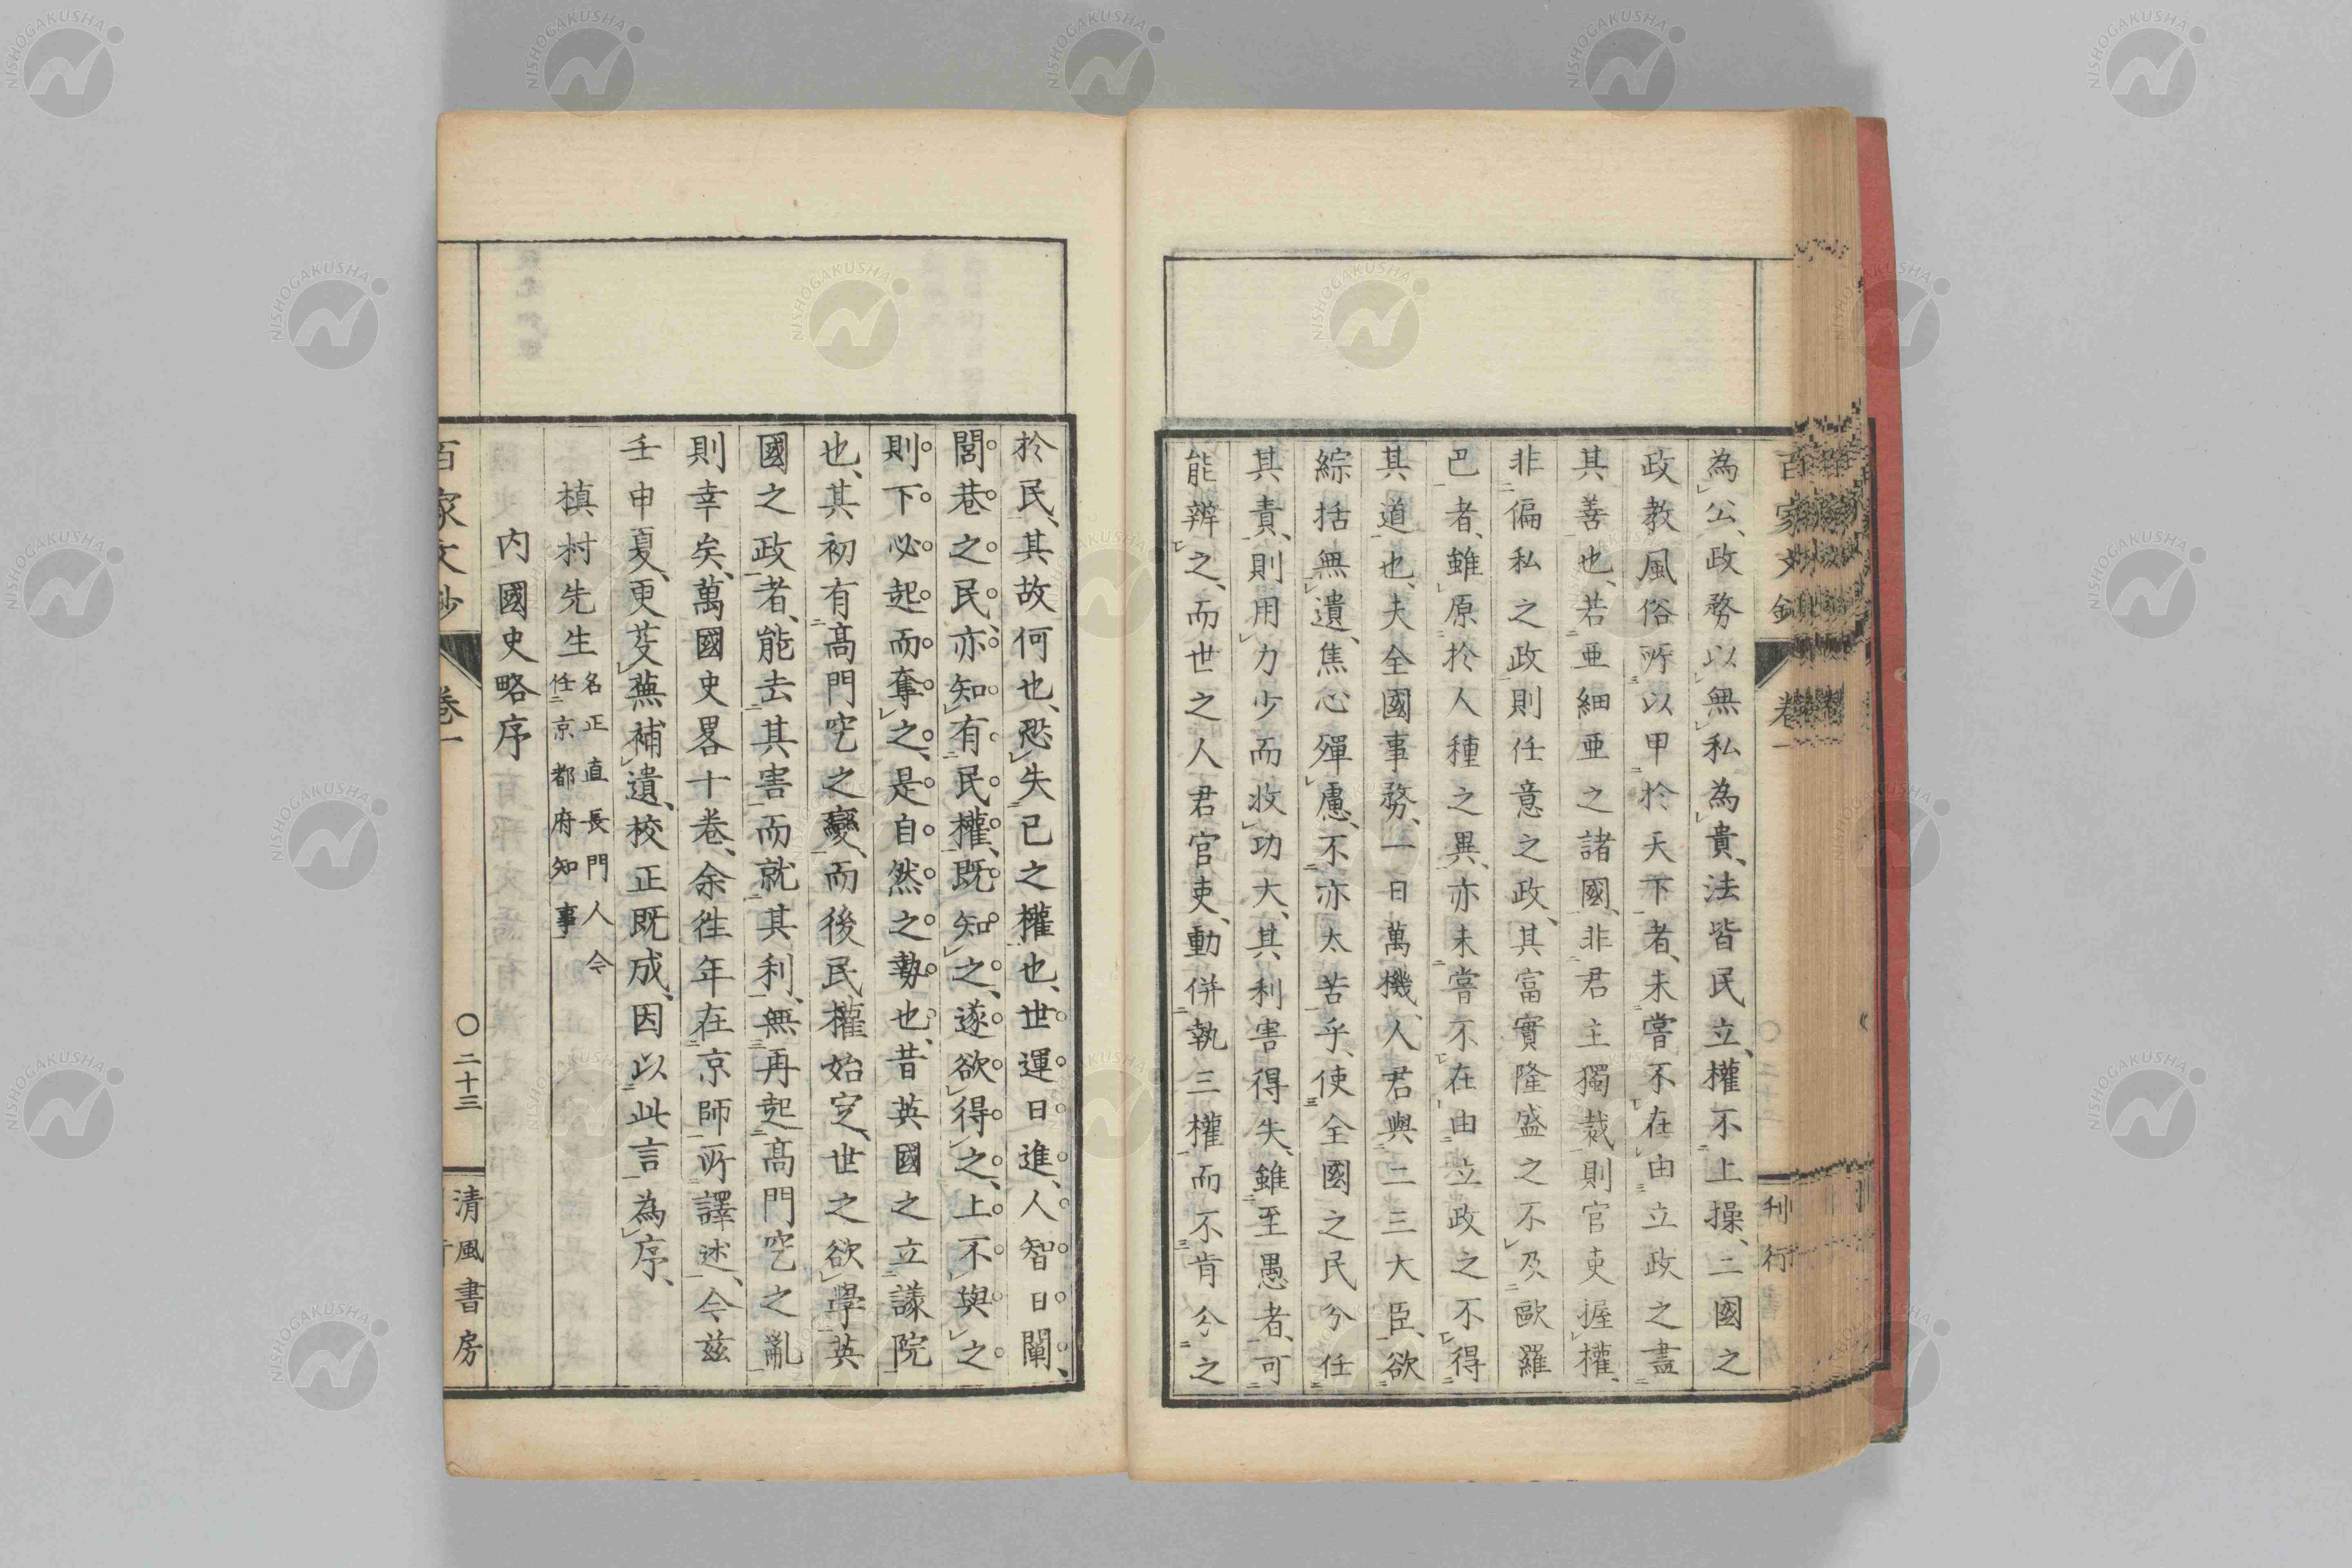 為公、政務以無私為貴、法皆民立、權不上操、二國之
政教風俗所以甲於天下者、未嘗不在由立政之盡
其善也、若亜細亜之諸國、非君主獨裁、則官吏握權、
非偏私之政、則任意之政、其富實隆盛之不及歐羅
巴者、雖原於人種之異、亦未嘗不在由立政之不得
其道也、夫全國事務、一日萬機、人君與二三大臣、欲
綜括無遺、焦心殫慮、不亦太苦乎、使全國之民分任
其責、則用力少而收功大、其利害得失、雖至愚者、可
能辨之、而世之人君官吏、動併執三權而不肯分之
於民、其故何也、恐失己之權也、世運日進、人智日闡、
閭巷之民、亦知有民權、既知之、遂欲得之、上不與之
則下必起而奪之、是自然之勢也、昔英國之立議院
也、其初有高門窄之變、而後民權始定、世之欲學英
國之政者、能去其害而就其利、無再起高門窄之亂
則幸矣、萬國史畧十卷、余往年在京師所譯述、今茲
壬申夏、更芟蕪補遺、校正既成、因以此言為序、
槙村先生 名正直長門人今任京都府知事
內國史略序
百家文鈔 卷一 〇二十三 清風書房
刊行
NISHOGAKUSHA